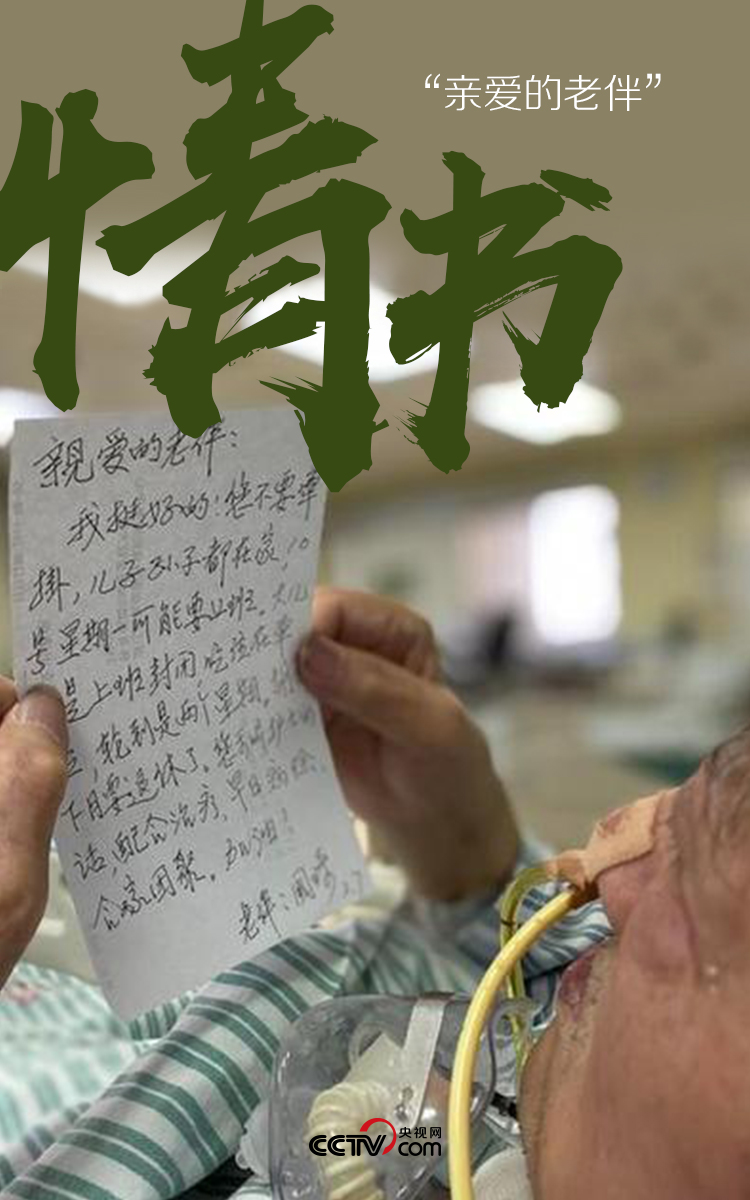 情书
“亲爱的老伴”
親爱的老伴：
我挺好的！您不要牵
掛，儿子孙子都在家，10
号星期一可能要上班。大儿
是上班封闭，吃住在单
位，轮到是两个星期。
下月要退休了。您
话，配合治疗，早日病愈，
合家团聚。加油！
老伴：国
2.7
CCTV 央视网
com